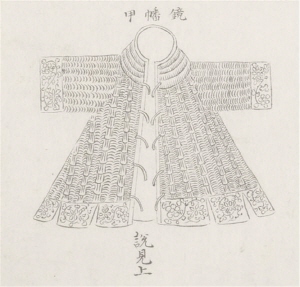 鏡幡甲
說見上